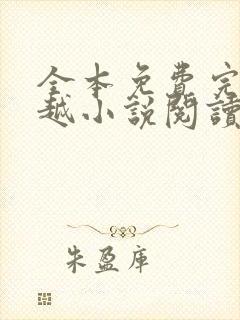 全本免費完
越小說閱讀
朱盈庫